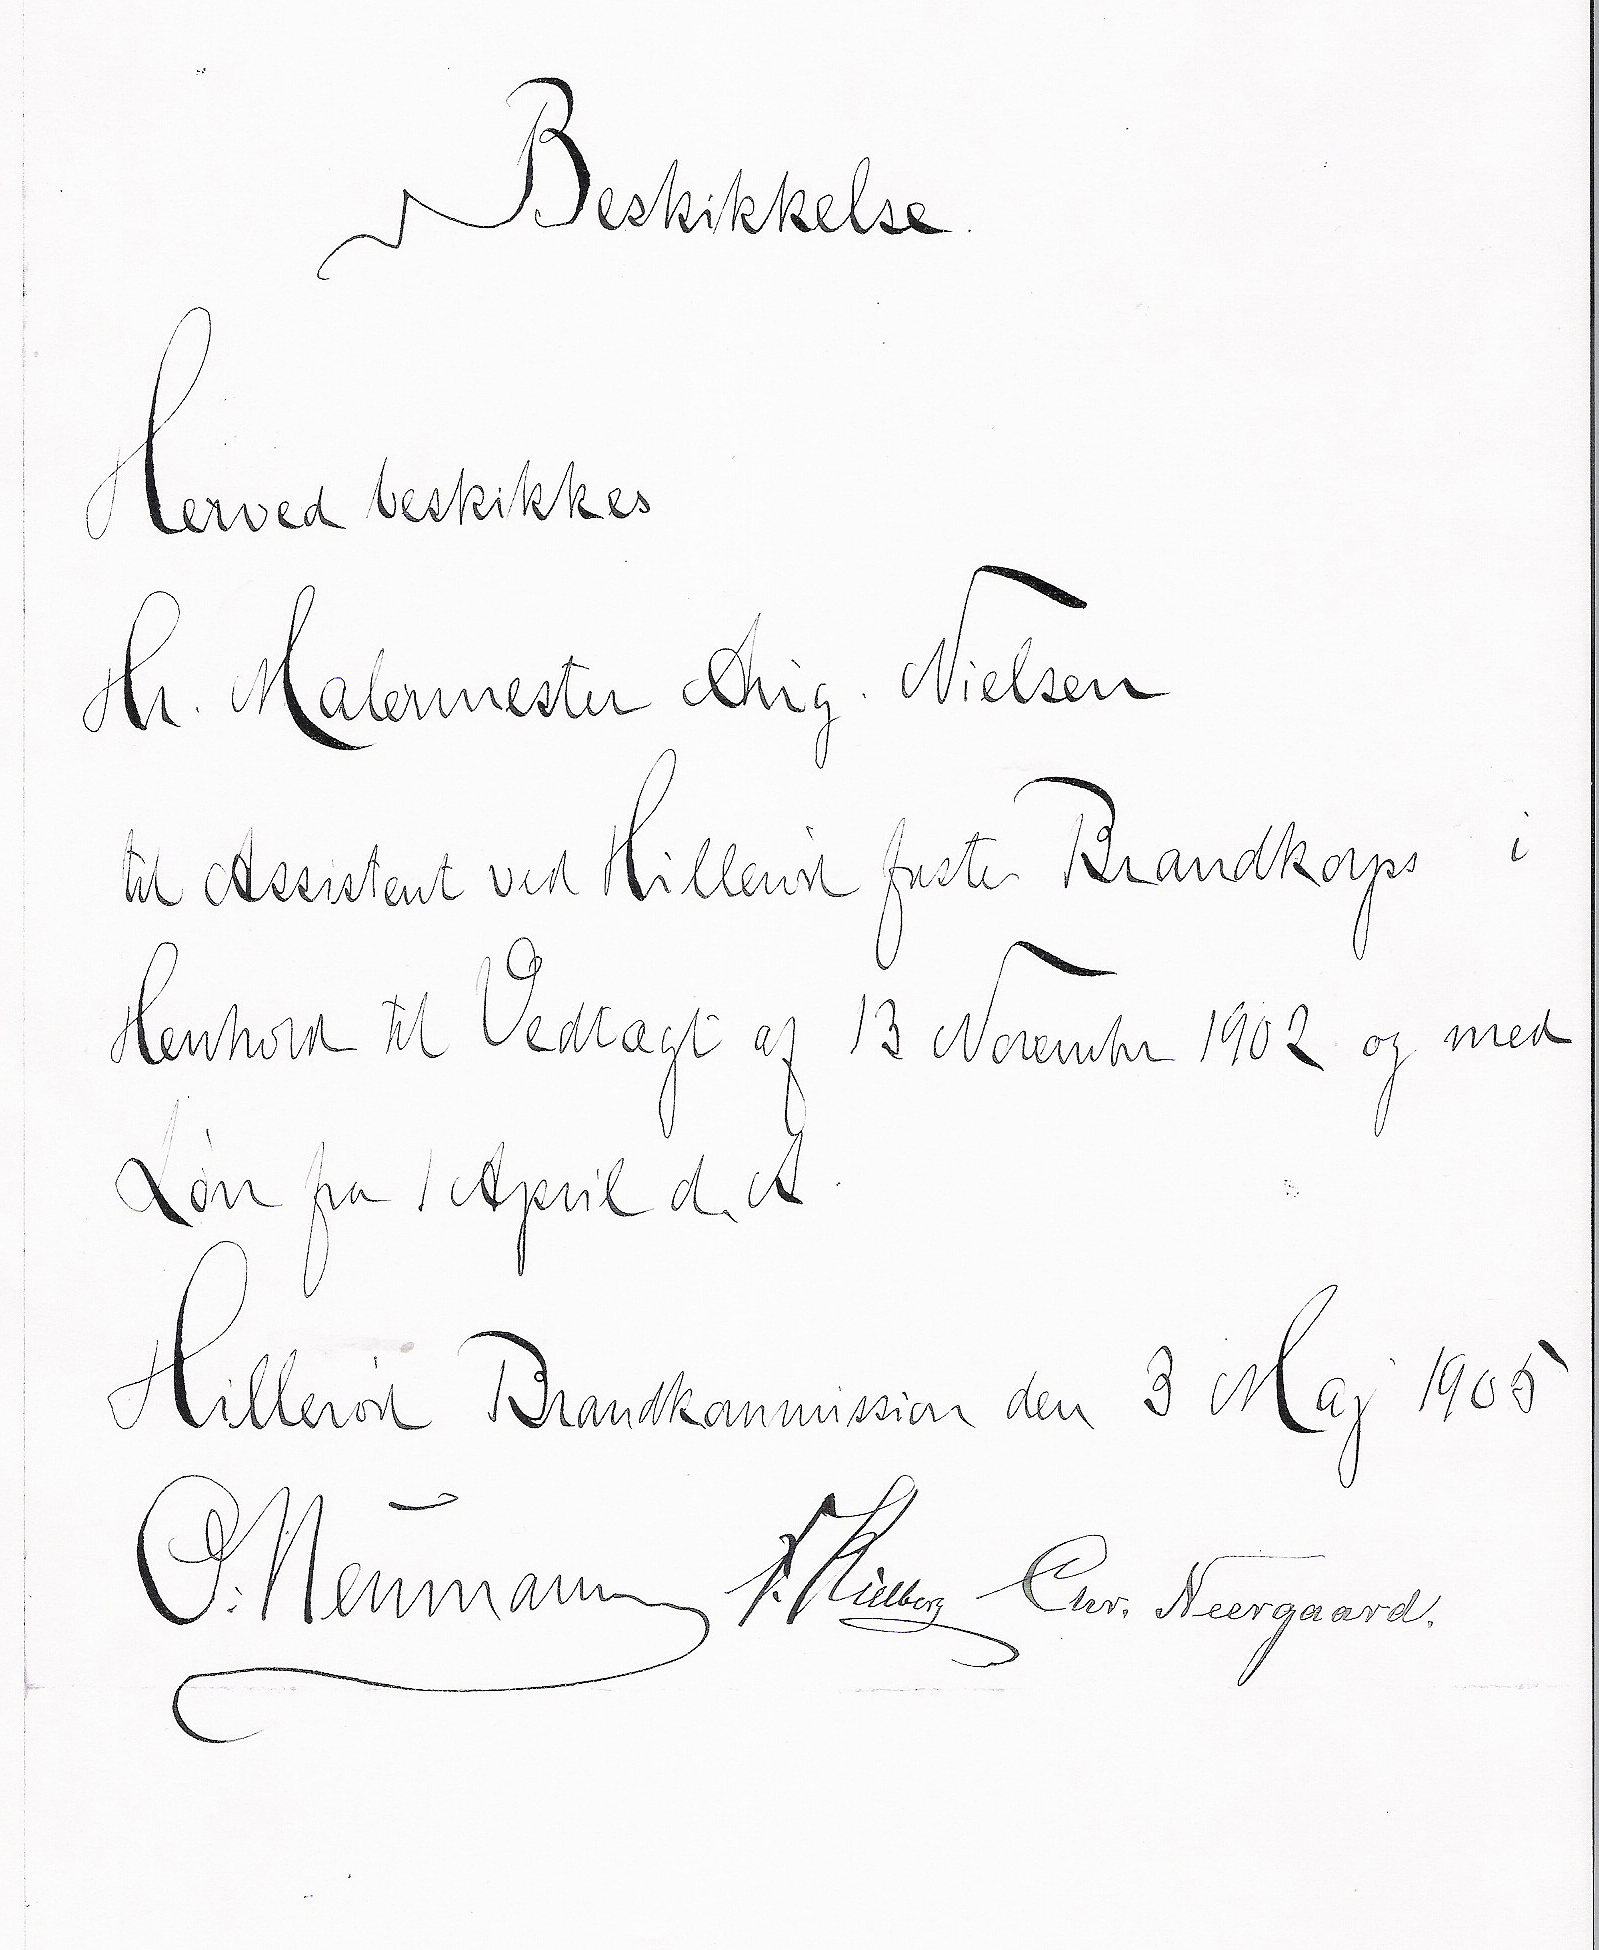 Beskikkelse.
Herved beskikkes
Hr. Malermester Aug. Nielsen
til Assistent ved Hillerød faste Brandkorps i
Henhold til Vedtægt af 13 November 1902 og med
Løn fra 1 April d. A.
Hillerød Brandkommission den 3 Maj 1905
O. Neumann Kielberg Chr. Neergaard.